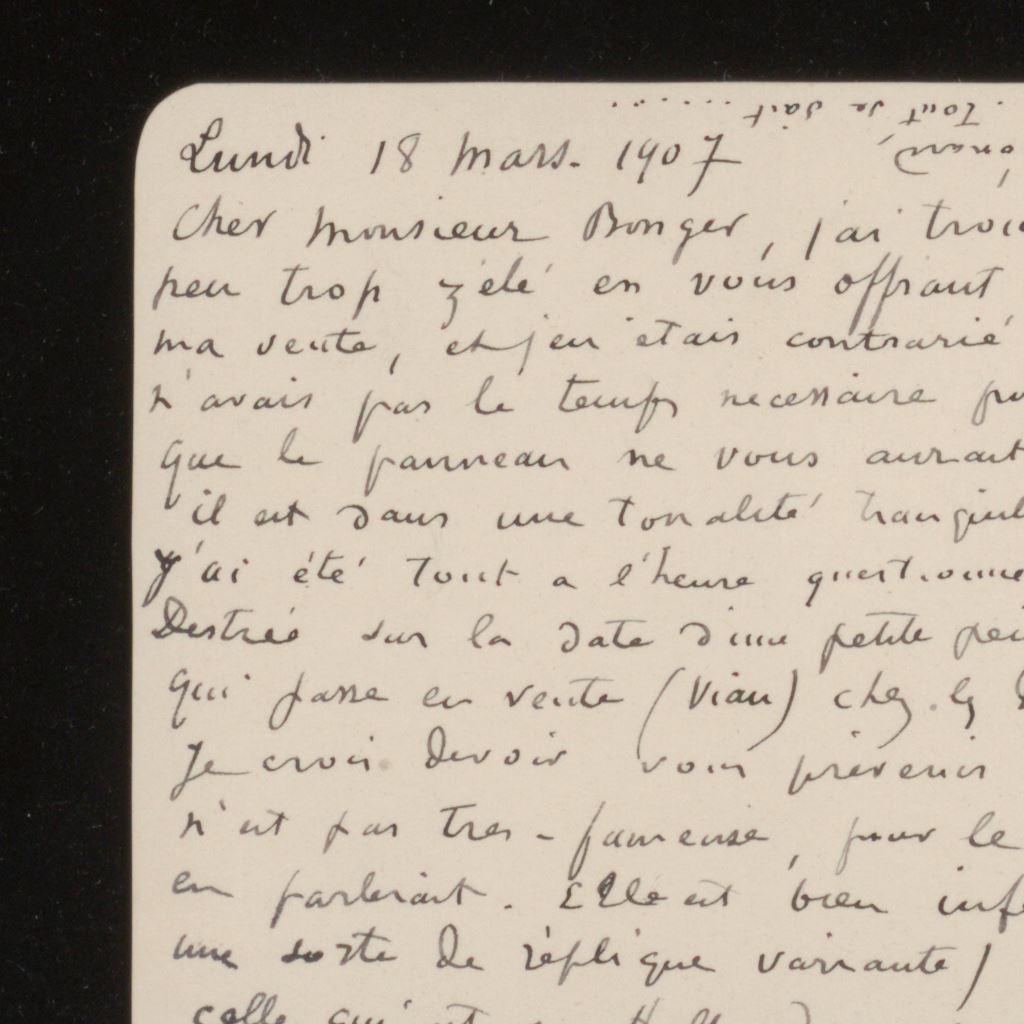 . Tout se sait .......
Lundi 18 mars. 1907
Cher monsieur Bonger, j'ai
peu trop zélé en vous offrant
ma vente, et j'en étais contrarié
n'avais pas le temps necessaire
que le panneau ne vous aurait
il est dans une tonalité
J'ai été tout a l'heure
Destrée sur la date d'une petite
qui passe en vente (Vian) chez les
Je crois devoir vous prévenir
n'est pas tres-fameuse, pour le
en parlerait. Elle est bien
une sorte de réplique variante/
celle qui est